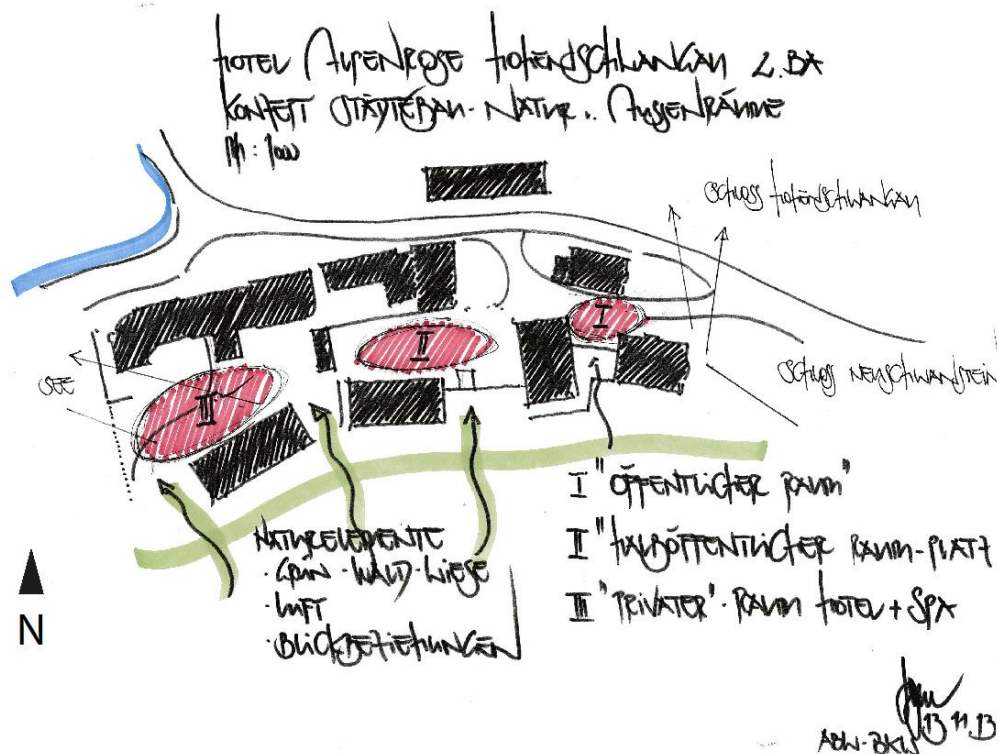 HOTEL ALPENROSE HOHENSCHWANGAU 2.BA
KONZEPT STÄDTEBAU - NATUR .. AUSSENRÄUME
SCHLOSS HOHENSCHWANGAU
SCHLOSS NEUSCHWANSTEIN
SEE
I
II
III
I "ÖFFENTLICHER RAUM"
II "HALBÖFFENTLICHER RAUM-PLATZ
III "PRIVATER" - RAUM HOTEL + SPA
NATURELEMENTE
· GRÜN - WALD - WIESE
· LUFT
· BLICKBEZIEHUNGEN
N
13 11.13